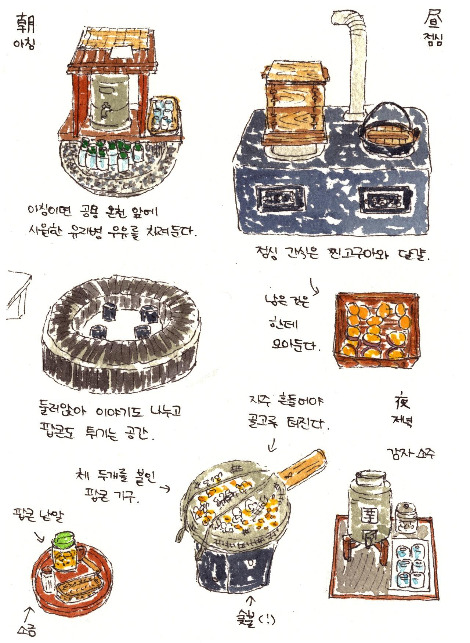 朝
아침
昼
점심
아침이면 공용 온천 앞에
시원한 유리병 우유를 차려둔다.
점심 간식은 찐고구마와 달걀.
남은 것은
한데
모아둔다.
둘러앉아 이야기도 나누고
팝콘도 튀기는 공간.
자주 흔들어야
골고루 터진다.
夜
저녁
감자소주
체 두개를 붙인
팝콘 기구.
팝콘 낟알
소금
숯불(!)